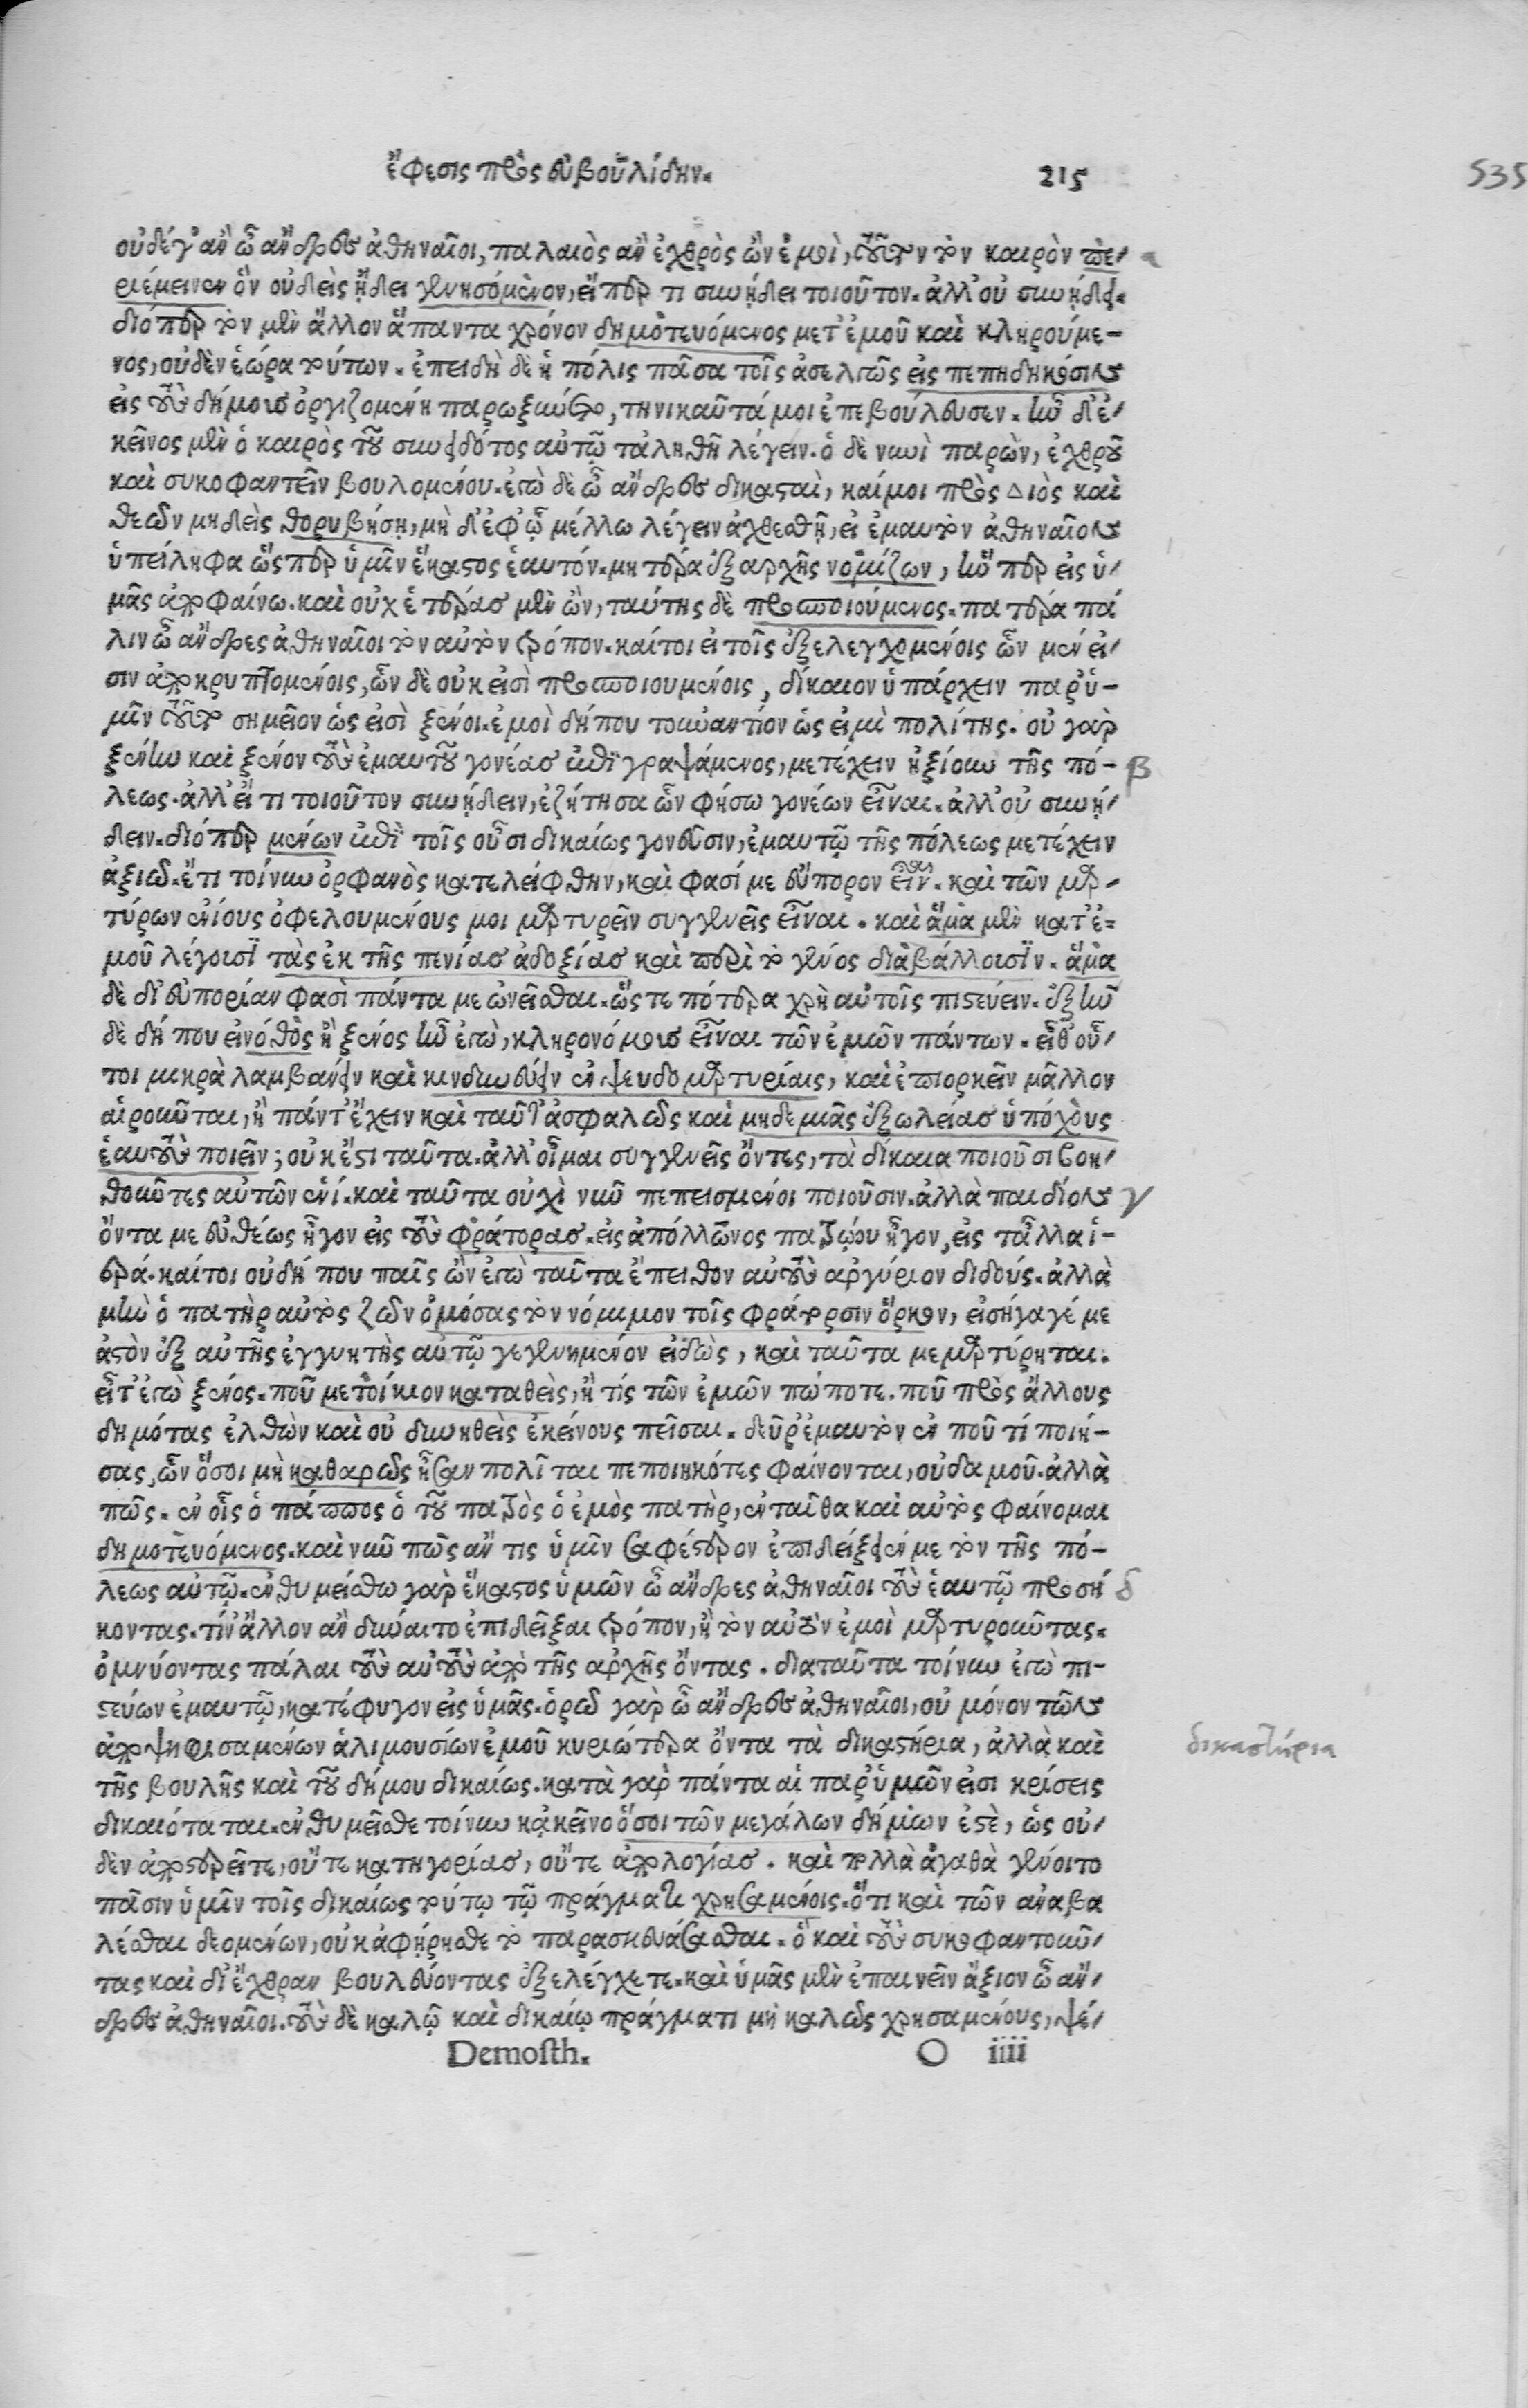 ἔφεσις πρὸς εὐβουλίδην.
215
535
οὐδέ γ' ἂν ὦ ἄνδρες ἀθηναῖοι, παλαιὸς ἂν ἐχθρὸς ὢν ἐμοὶ, τοῦτον τὸν καιρὸν πε-
α
ριέμεινεν ὃν οὐδεὶς ᾔδει γενησόμενον, εἴπερ τι συνῄδει τοιοῦτον. ἀλλ' οὐ συνῄδει.
διόπερ τὸν μὲν ἄλλον ἅπαντα χρόνον δημοτευόμενος μετ' ἐμοῦ καὶ κληρούμε-
νος, οὐδὲν ἑώρα τούτων. ἐπειδὴ δὲ ἡ πόλις πᾶσα τοῖς ἀσελγῶς εἰς πεπηδηκόσιν
εἰς τοὺς δήμους ὀργιζομένη παρωξυντο, τηνικαῦτά μοι ἐπεβούλευσεν. ἦν δ' ἐ-
κεῖνος μὲν ὁ καιρὸς τοῦ συνειδότος αὑτῷ τἀληθῆ λέγειν. ὁ δὲ νυνὶ παρὼν, ἐχθροῦ
καὶ συκοφαντεῖν βουλομένου. ἐγὼ δὲ ὦ ἄνδρες δικασταὶ, καί μοι πρὸς Διὸς καὶ
θεῶν μηδεὶς θορυβήσῃ, μὴ δ' ἐφ' ᾧ μέλλω λέγειν ἀχθεσθῇ, εἰ ἐμαυτὸν ἀθηναῖον
ὑπείληφα ὥσπερ ὑμῶν ἕκαστος ἑαυτόν. μητέρα ἐξ αρχῆς νομίζων, ἥνπερ εἰς ὑ-
μᾶς ἀποφαίνω. καὶ οὐχ ἑτέρας μὲν ὢν, ταύτης δὲ προσποιούμενος. πατέρα πά
λιν ὦ ἄνδρες ἀθηναῖοι τὸν αὐτὸν τρόπον. καίτοι εἰ τοῖς ἐξελεγχομένοις ὧν μέν εἰ-
σιν ἀποκρυπτομένοις, ὧν δὲ οὐκ εἰσὶ προσποιουμένοις, δίκαιον ὑπάρχειν παρ' ὑ-
μῖν τοῦτο σημεῖον ὡς εἰσὶ ξένοι. ἐμοὶ δήπου τοὐναντίον ὡς εἰμὶ πολίτης. οὐ γὰρ
ξένην καὶ ξένον τοὺς ἐμαυτοῦ γονέας ἐπιγραψάμενος, μετέχειν ἠξίουν τῆς πό-
β
λεως. ἀλλ' εἴ τι τοιοῦτον συνῄδειν, ἐζήτησα ὧν φήσω γονέων εἶναι. ἀλλ' οὐ συνῄ-
δειν. διόπερ μένων ἐπὶ τοῖς οὖσι δικαίως γονεῦσιν, ἐμαυτῷ τῆς πόλεως μετέχειν
ἀξιῶ. ἔτι τοίνυν ὀρφανὸς κατελείφθην, καὶ φασί με εὔπορον εἶναι. καὶ τῶν μαρ-
τύρων ἐνίους ὀφελουμένους μοι μαρτυρεῖν συγγενεῖς εἶναι. καὶ ἅμα μὲν κατ' ἐ-
μοῦ λέγουσι τὰς ἐκ τῆς πενίας ἀδοξίας καὶ περὶ τὸ γένος διαβάλλουσιν. ἅμα
δὲ δι' εὐπορίαν φασὶ πάντα με ὠνεῖσθαι. ὥστε πότερα χρὴ αὐτοῖς πιστεύειν. ἐξῆν
δὲ δήπου εἰ νόθος ἢ ξένος ἦν ἐγὼ, κληρονόμους εἶναι τῶν ἐμῶν πάντων. εἶθ' οὗ-
τοι μικρὰ λαμβάνειν καὶ κινδυνεύειν ἐν ψευδομαρτυρίαις, καὶ ἐπιορκεῖν μᾶλλον
αἱροῦνται, ἢ πάντ' ἔχειν καὶ ταῦτ' ἀσφαλῶς καὶ μηδεμιᾶς ἐξωλείας ὑπόχους
ἑαυτοὺς ποιεῖν; οὐκ ἔστι ταῦτα. ἀλλ' οἶμαι συγγενεῖς ὄντες, τὰ δίκαια ποιοῦσι βοη-
θοῦντες αὑτῶν ἑνί. καὶ ταῦτα οὐχὶ νῦν πεπεισμένοι ποιοῦσιν. ἀλλὰ παιδίον
γ
ὄντα με εὐθέως ἦγον εἰς τοὺς φράτορας. εἰς ἀπόλλωνος πατρῴου ἦγον, εἰς τἆλλα ἱ-
ερά. καίτοι οὐ δή που παῖς ὢν ἐγὼ ταῦτα ἔπειθον αὐτοὺς ἀργύριον διδούς. ἀλλὰ
μὴν ὁ πατὴρ αὐτὸς ζῶν ὀμόσας τὸν νόμιμον τοῖς φράτορσιν ὅρκον, εἰσήγαγέ με
ἀστὸν ἐξ αὐτῆς ἐγγυητῆς αὐτῷ γεγενημένον εἰδὼς, καὶ ταῦτα μεμαρτύρηται.
εἶτ' ἐγὼ ξένος. ποῦ μετοίκιον καταθεὶς, ἢ τίς τῶν ἐμῶν πώποτε. ποῦ πρὸς ἄλλους
δημότας ἐλθὼν καὶ οὐ δυνηθεὶς ἐκείνους πεῖσαι. δεῦρ' ἐμαυτὸν ἐν ποῦ τί ποιή-
σας, ὧν ὅσοι μὴ καθαρῶς ἦσαν πολῖται πεποιηκότες φαίνονται, οὐδαμοῦ. ἀλλὰ
πῶς. ἐν οἷς ὁ πάππος ὁ τοῦ πατρὸς ὁ ἐμὸς πατὴρ, ἐνταῦθα καὶ αὐτὸς φαίνομαι
δημοτευόμενος. καὶ νῦν πῶς ἄν τις ὑμῖν σαφέστερον ἐπιδείξειέν με τὸν τῆς πό-
λεως αὐτῷ. ἐνθυμείσθω γὰρ ἕκαστος ὑμῶν ὦ ἄνδρες ἀθηναῖοι τοὺς ἑαυτῷ προσή
δ
κοντας. τίν' ἄλλον ἂν δύναιτο ἐπιδεῖξαι τρόπον, ἢ τὸν αὐτὸν ἐμοὶ μαρτυροῦντας.
ὀμνύοντας πάλαι τοὺς αὐτοὺς ἀπὸ τῆς ἀρχῆς ὄντας. διαταῦτα τοίνυν ἐγὼ πι-
στεύων ἐμαυτῷ, κατέφυγον εἰς ὑμᾶς. ὁρῶ γὰρ ὦ ἄνδρες ἀθηναῖοι, οὐ μόνον τῶν
ἀποψηφισαμένων ἁλιμουσίων ἐμοῦ κυριώτερα ὄντα τὰ δικαστήρια, ἀλλὰ καὶ
δικαστήρια
τῆς βουλῆς καὶ τοῦ δήμου δικαίως. κατὰ γὰρ πάντα αἱ παρ' ὑμῶν εἰσι κρίσεις
δικαιόταται. ἐνθυμεῖσθε τοίνυν κἀκεῖνο ὅσοι τῶν μεγάλων δήμων ἐστὲ, ὡς οὐ-
δὲν ἀποστερεῖτε, οὔτε κατηγορίας, οὔτε ἀπολογίας. καὶ πολλὰ ἀγαθὰ γένοιτο
πᾶσιν ὑμῖν τοῖς δικαίως τούτῳ τῷ πράγματι χρησαμένοις. ὅτι καὶ τῶν ἀναβα
λέσθαι δεομένων, οὐκ ἀφῄρησθε τὸ παρασκευάσασθαι. ὃ καὶ τοὺς συκοφαντοῦν-
τας καὶ δι' ἔχθραν βουλεύοντας ἐξελέγχετε. καὶ ὑμᾶς μὲν ἐπαινεῖν ἄξιον ὦ ἄν-
δρες ἀθηναῖοι. τοὺς δὲ καλῷ καὶ δικαίῳ πράγματι μὴ καλῶς χρησαμένους, ψέ-
Demosth.
O iiii